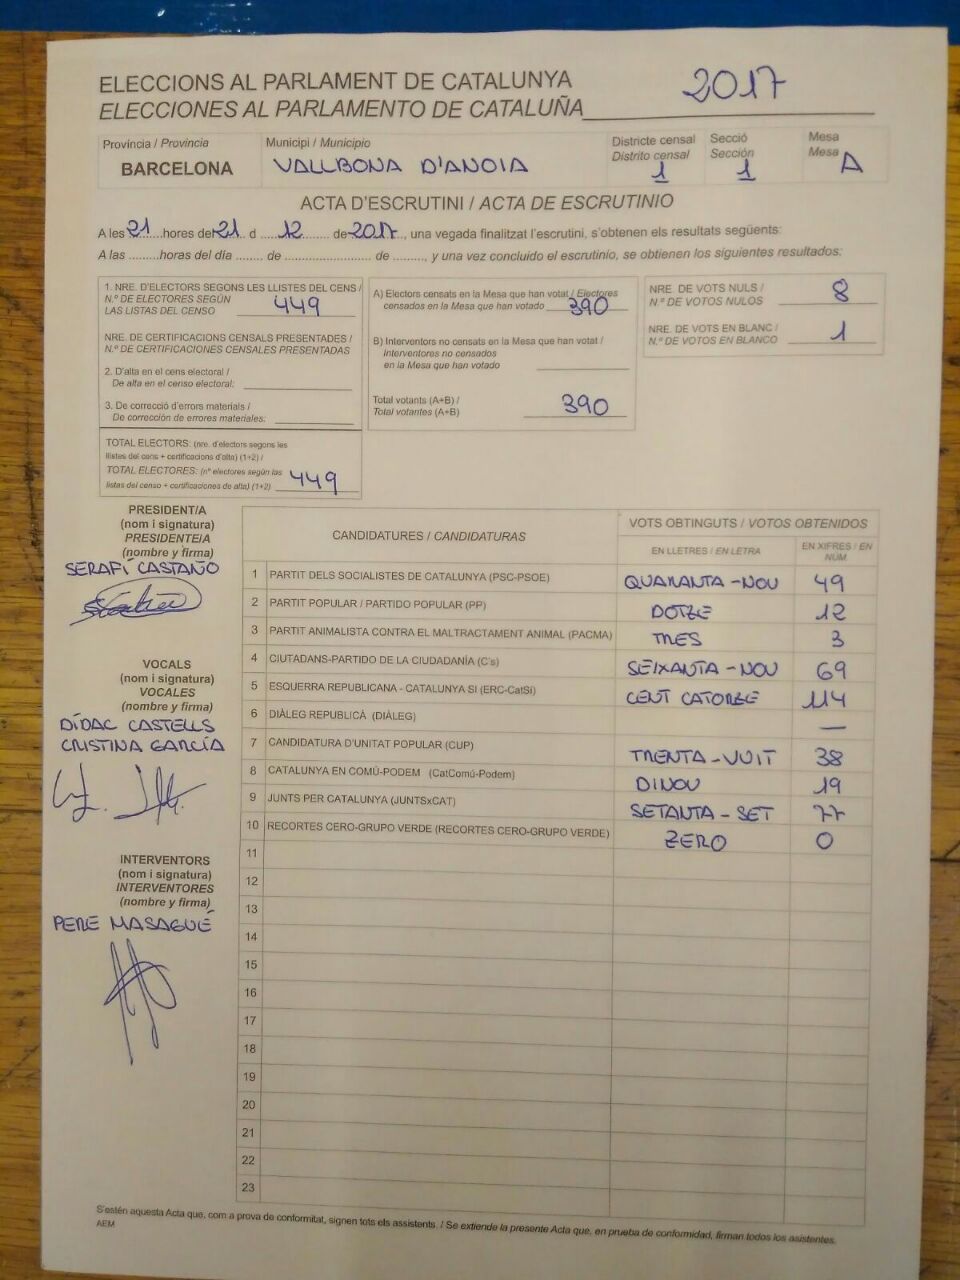 ELECCIONS AL PARLAMENT DE CATALUNYA
ELECCIONES AL PARLAMENTO DE CATALUÑA 2017
Província / Provincia Municipi / Municipio Districte censal Secció Mesa
Distrito censal Sección Mesa
BARCELONA VALLBONA D'ANOIA 1 1 A
ACTA D'ESCRUTINI / ACTA DE ESCRUTINIO
A les 21 hores del 21 d 12 de 2017, una vegada finalitzat l'escrutini, s'obtenen els resultats següents:
A las .........horas del día ........ de ........................ de ........, y una vez concluido el escrutinio, se obtienen los siguientes resultados:
1. NRE. D'ELECTORS SEGONS LES LLISTES DEL CENS /
N.º DE ELECTORES SEGÚN
LAS LISTAS DEL CENSO 449
NRE. DE CERTIFICACIONS CENSALS PRESENTADES /
N.º DE CERTIFICACIONES CENSALES PRESENTADAS
2. D'alta en el cens electoral /
De alta en el censo electoral:
3. De correcció d'errors materials /
De corrección de errores materiales:
TOTAL ELECTORS: (nre. d'electors segons les
llistes del cens + certificacions d'alta) (1+2) /
TOTAL ELECTORES: (nº electores según las
listas del censo + certificaciones de alta) (1+2) 449
A) Electors censats en la Mesa que han votat / Electores
censados en la Mesa que han votado 390
B) Interventors no censats en la Mesa que han votat /
Interventores no censados
en la Mesa que han votado
Total votants (A+B) /
Total votantes (A+B) 390
NRE. DE VOTS NULS /
N.º DE VOTOS NULOS 8
NRE. DE VOTS EN BLANC /
N.º DE VOTOS EN BLANCO 1
PRESIDENT/A
(nom i signatura)
PRESIDENTE/A
(nombre y firma)
SERAFÍ CASTAÑO
VOCALS
(nom i signatura)
VOCALES
(nombre y firma)
DÍDAC CASTELLS
CRISTINA GARCÍA
INTERVENTORS
(nom i signatura)
INTERVENTORES
(nombre y firma)
PERE MASAGUÉ
CANDIDATURES / CANDIDATURAS VOTS OBTINGUTS / VOTOS OBTENIDOS
EN LLETRES / EN LETRA EN XIFRES / EN
NÚM
1 PARTIT DELS SOCIALISTES DE CATALUNYA (PSC-PSOE) QUARANTA-NOU 49
2 PARTIT POPULAR / PARTIDO POPULAR (PP) DOTZE 12
3 PARTIT ANIMALISTA CONTRA EL MALTRACTAMENT ANIMAL (PACMA) TRES 3
4 CIUTADANS-PARTIDO DE LA CIUDADANÍA (C's) SEIXANTA-NOU 69
5 ESQUERRA REPUBLICANA - CATALUNYA SÍ (ERC-CatSí) CENT CATORZE 114
6 DIÀLEG REPUBLICÀ (DIÀLEG) —
7 CANDIDATURA D'UNITAT POPULAR (CUP) TRENTA-VUIT 38
8 CATALUNYA EN COMÚ-PODEM (CatComú-Podem) DINOU 19
9 JUNTS PER CATALUNYA (JUNTSxCAT) SETANTA-SET 77
10 RECORTES CERO-GRUPO VERDE (RECORTES CERO-GRUPO VERDE) ZERO 0
11
12
13
14
15
16
17
18
19
20
21
22
23
S'estén aquesta Acta que, com a prova de conformitat, signen tots els assistents. / Se extiende la presente Acta que, en prueba de conformidad, firman todos los asistentes.
AEM